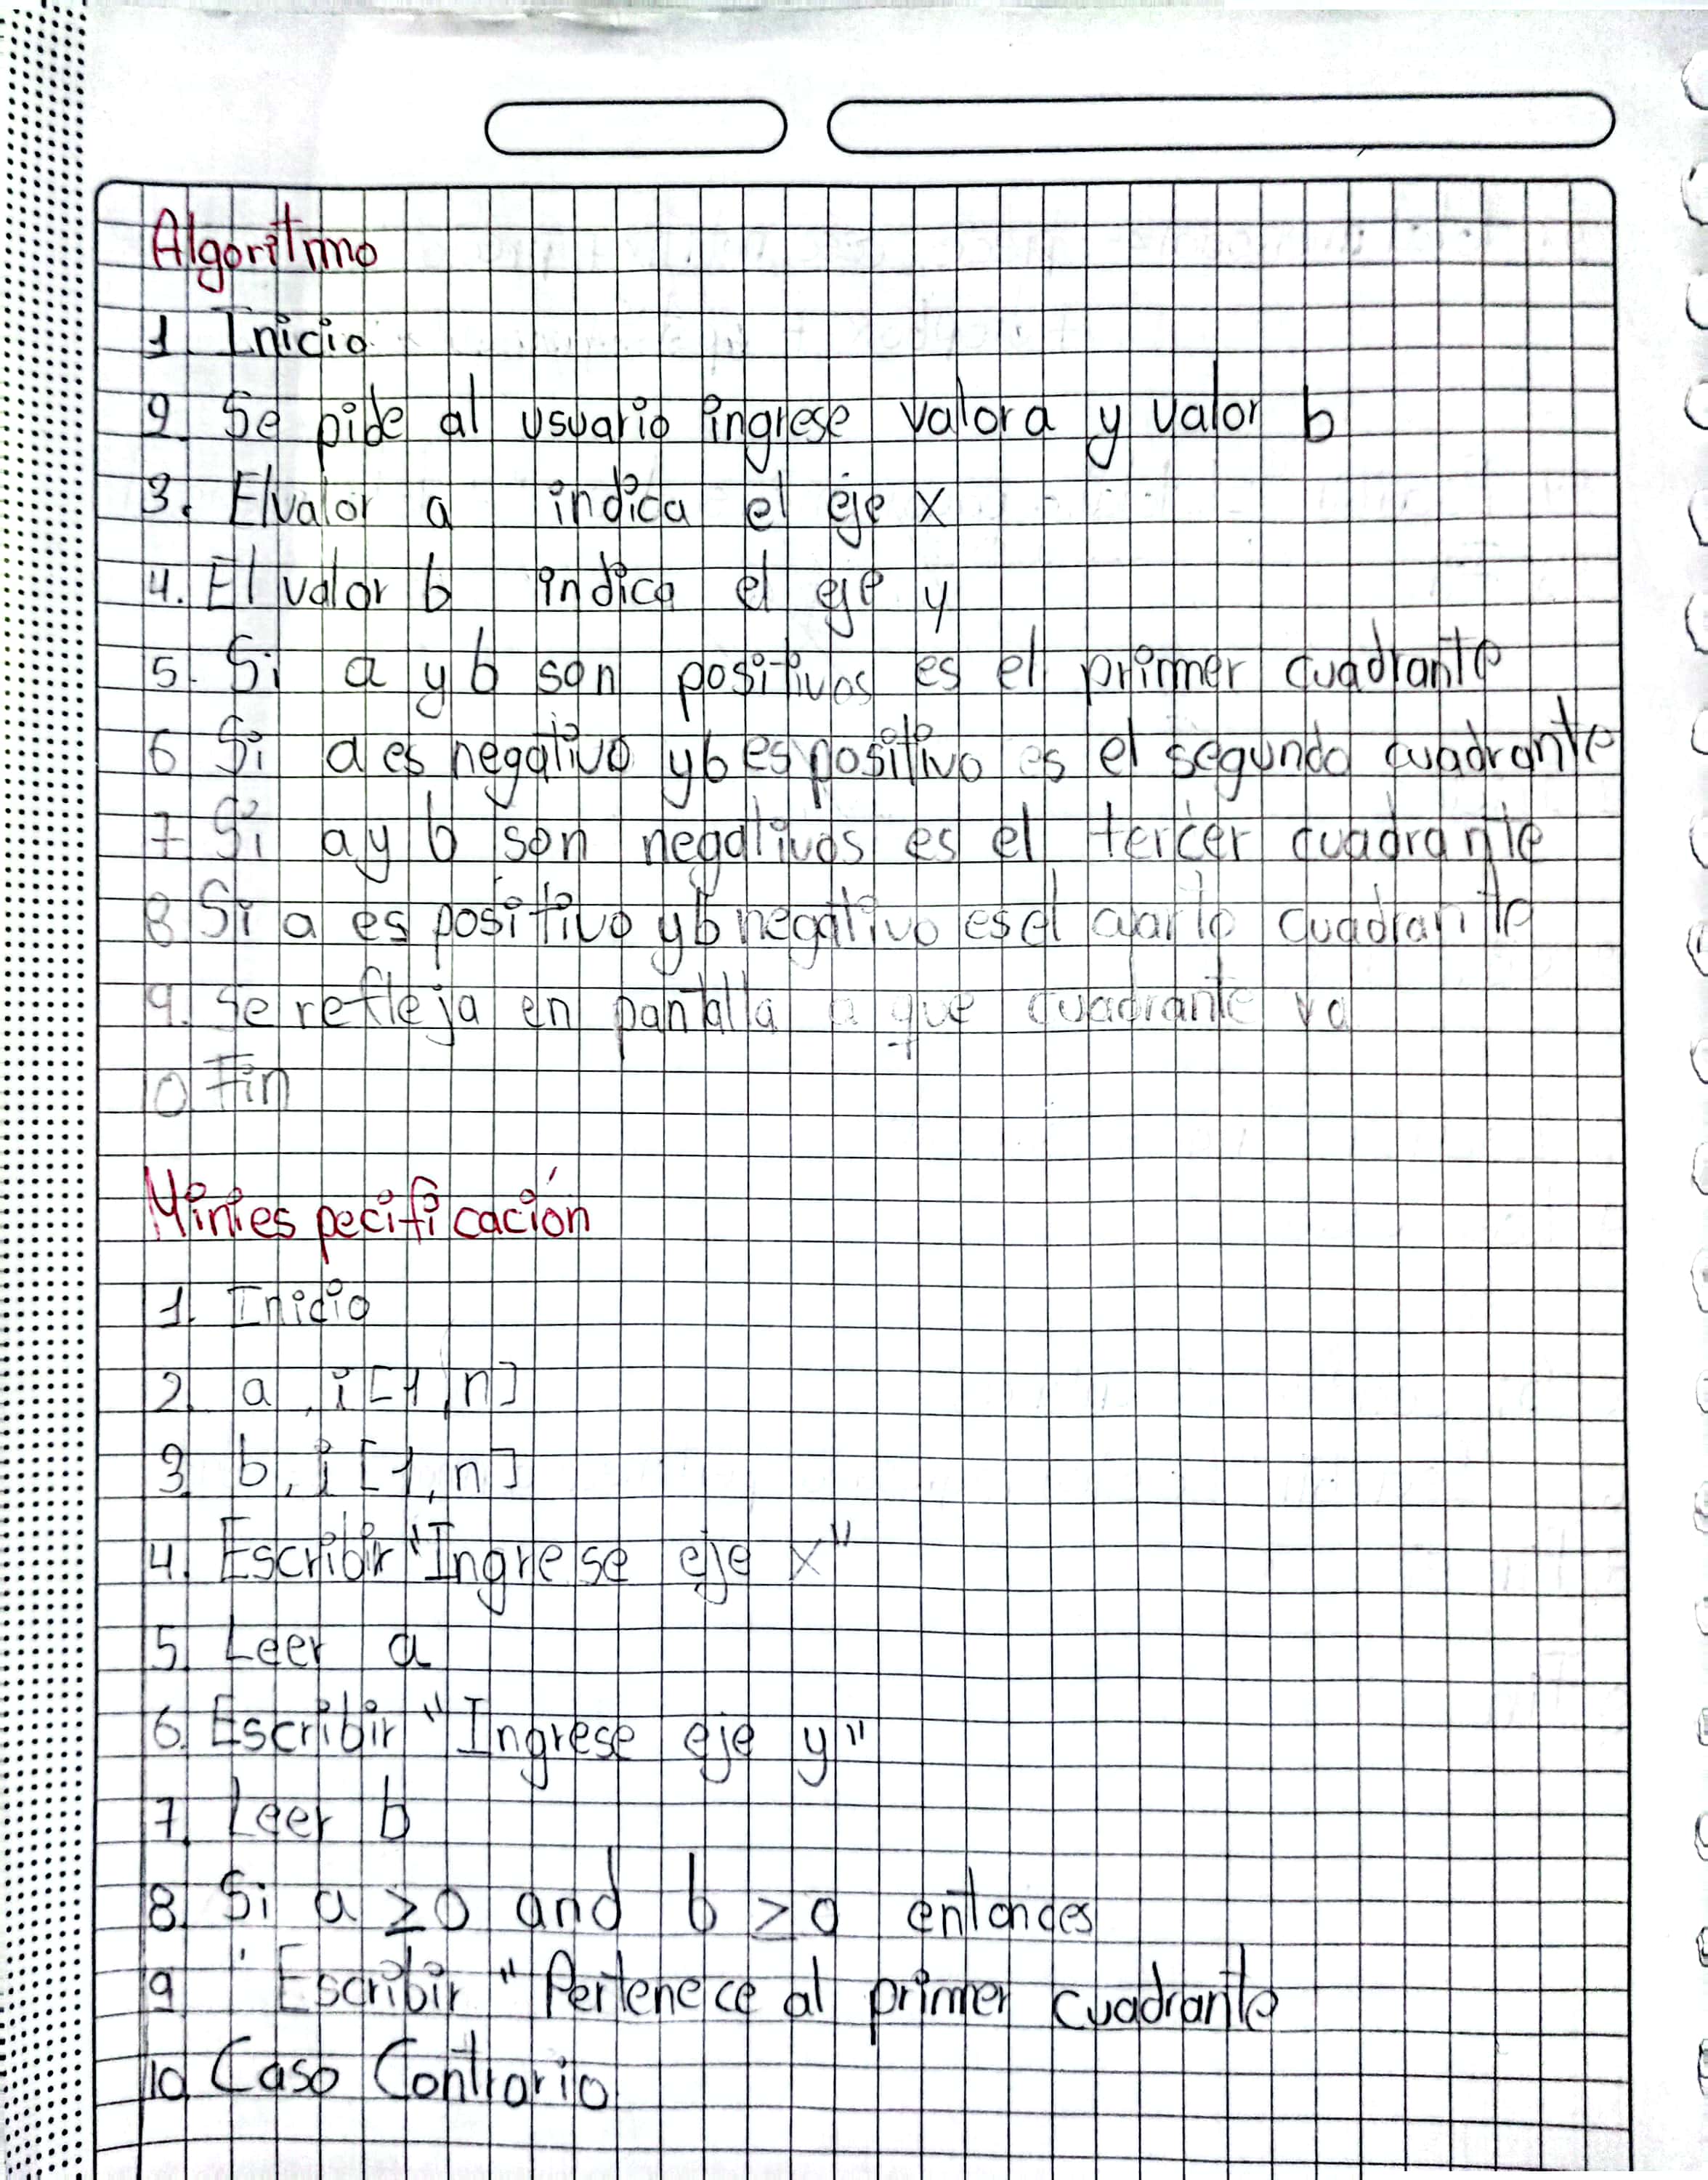 Algoritmo
1. Inicio
2. Se pide al usuario ingrese valor a y valor b
3. El valor a indica el eje X
4. El valor b indica el eje y
5. Si a y b son positivos es el primer cuadrante
6 Si a es negativo y b es positivo es el segundo cuadrante
7 Si a y b son negativos es el tercer cuadrante
8 Si a es positivo y b negativo es el cuarto cuadrante
9. Se refleja en pantalla a que cuadrante va
10. Fin
Miniespecificación
1. Inicio
2. a, i [1, n]
3. b, i [1, n]
4. Escribir "Ingrese eje X"
5. Leer a
6. Escribir "Ingrese eje y"
7. Leer b
8. Si a ≥ 0 and b ≥ 0 entonces
9 Escribir "Pertenece al primer cuadrante
10 Caso Contrario